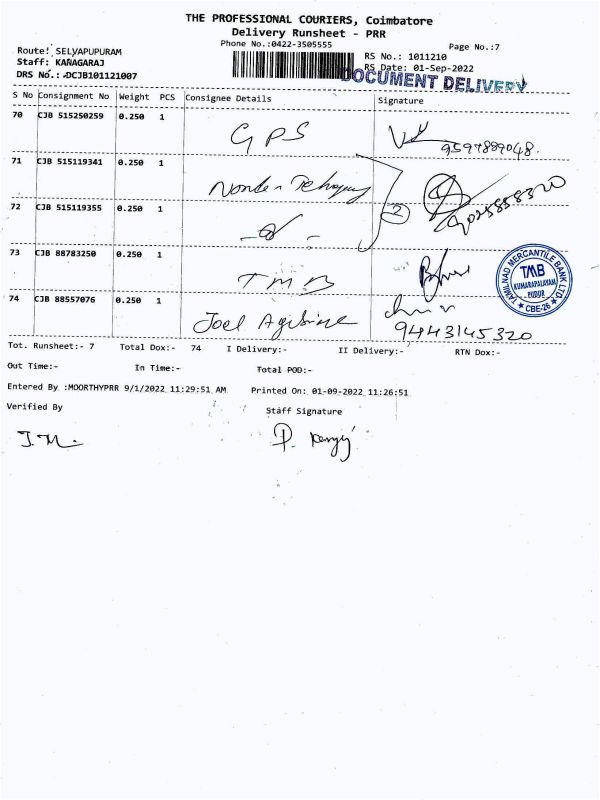 THE PROFESSIONAL COURIERS, Coimbatore
Delivery Runsheet - PRR
Phone No.:0422-3505555
Page No.:7
Route: SELVAPUPURAM
RS No.: 1011210
Staff: KANAGARAJ
RS Date: 01-Sep-2022
DRS No.: DCJB101121007
DOCUMENT DELIVERY
S No Consignment No Weight PCS Consignee Details Signature
70 CJB 515250259 0.250 1 GPS 9597889048.
71 CJB 515119341 0.250 1
72 CJB 515119355 0.250 1 2
73 CJB 88783250 0.250 1 TMB
TAMILNAD MERCANTILE BANK LTD.
TMB
KUMARAPALAYAM
PUDUR
CBE-26
74 CJB 88557076 0.250 1 Joel 9443145320
Tot. Runsheet:- 7 Total Dox:- 74 I Delivery:- II Delivery:- RTN Dox:-
Out Time:- In Time:- Total POD:-
Entered By :MOORTHYPRR 9/1/2022 11:29:51 AM Printed On: 01-09-2022 11:26:51
Verified By Staff Signature
J.M.